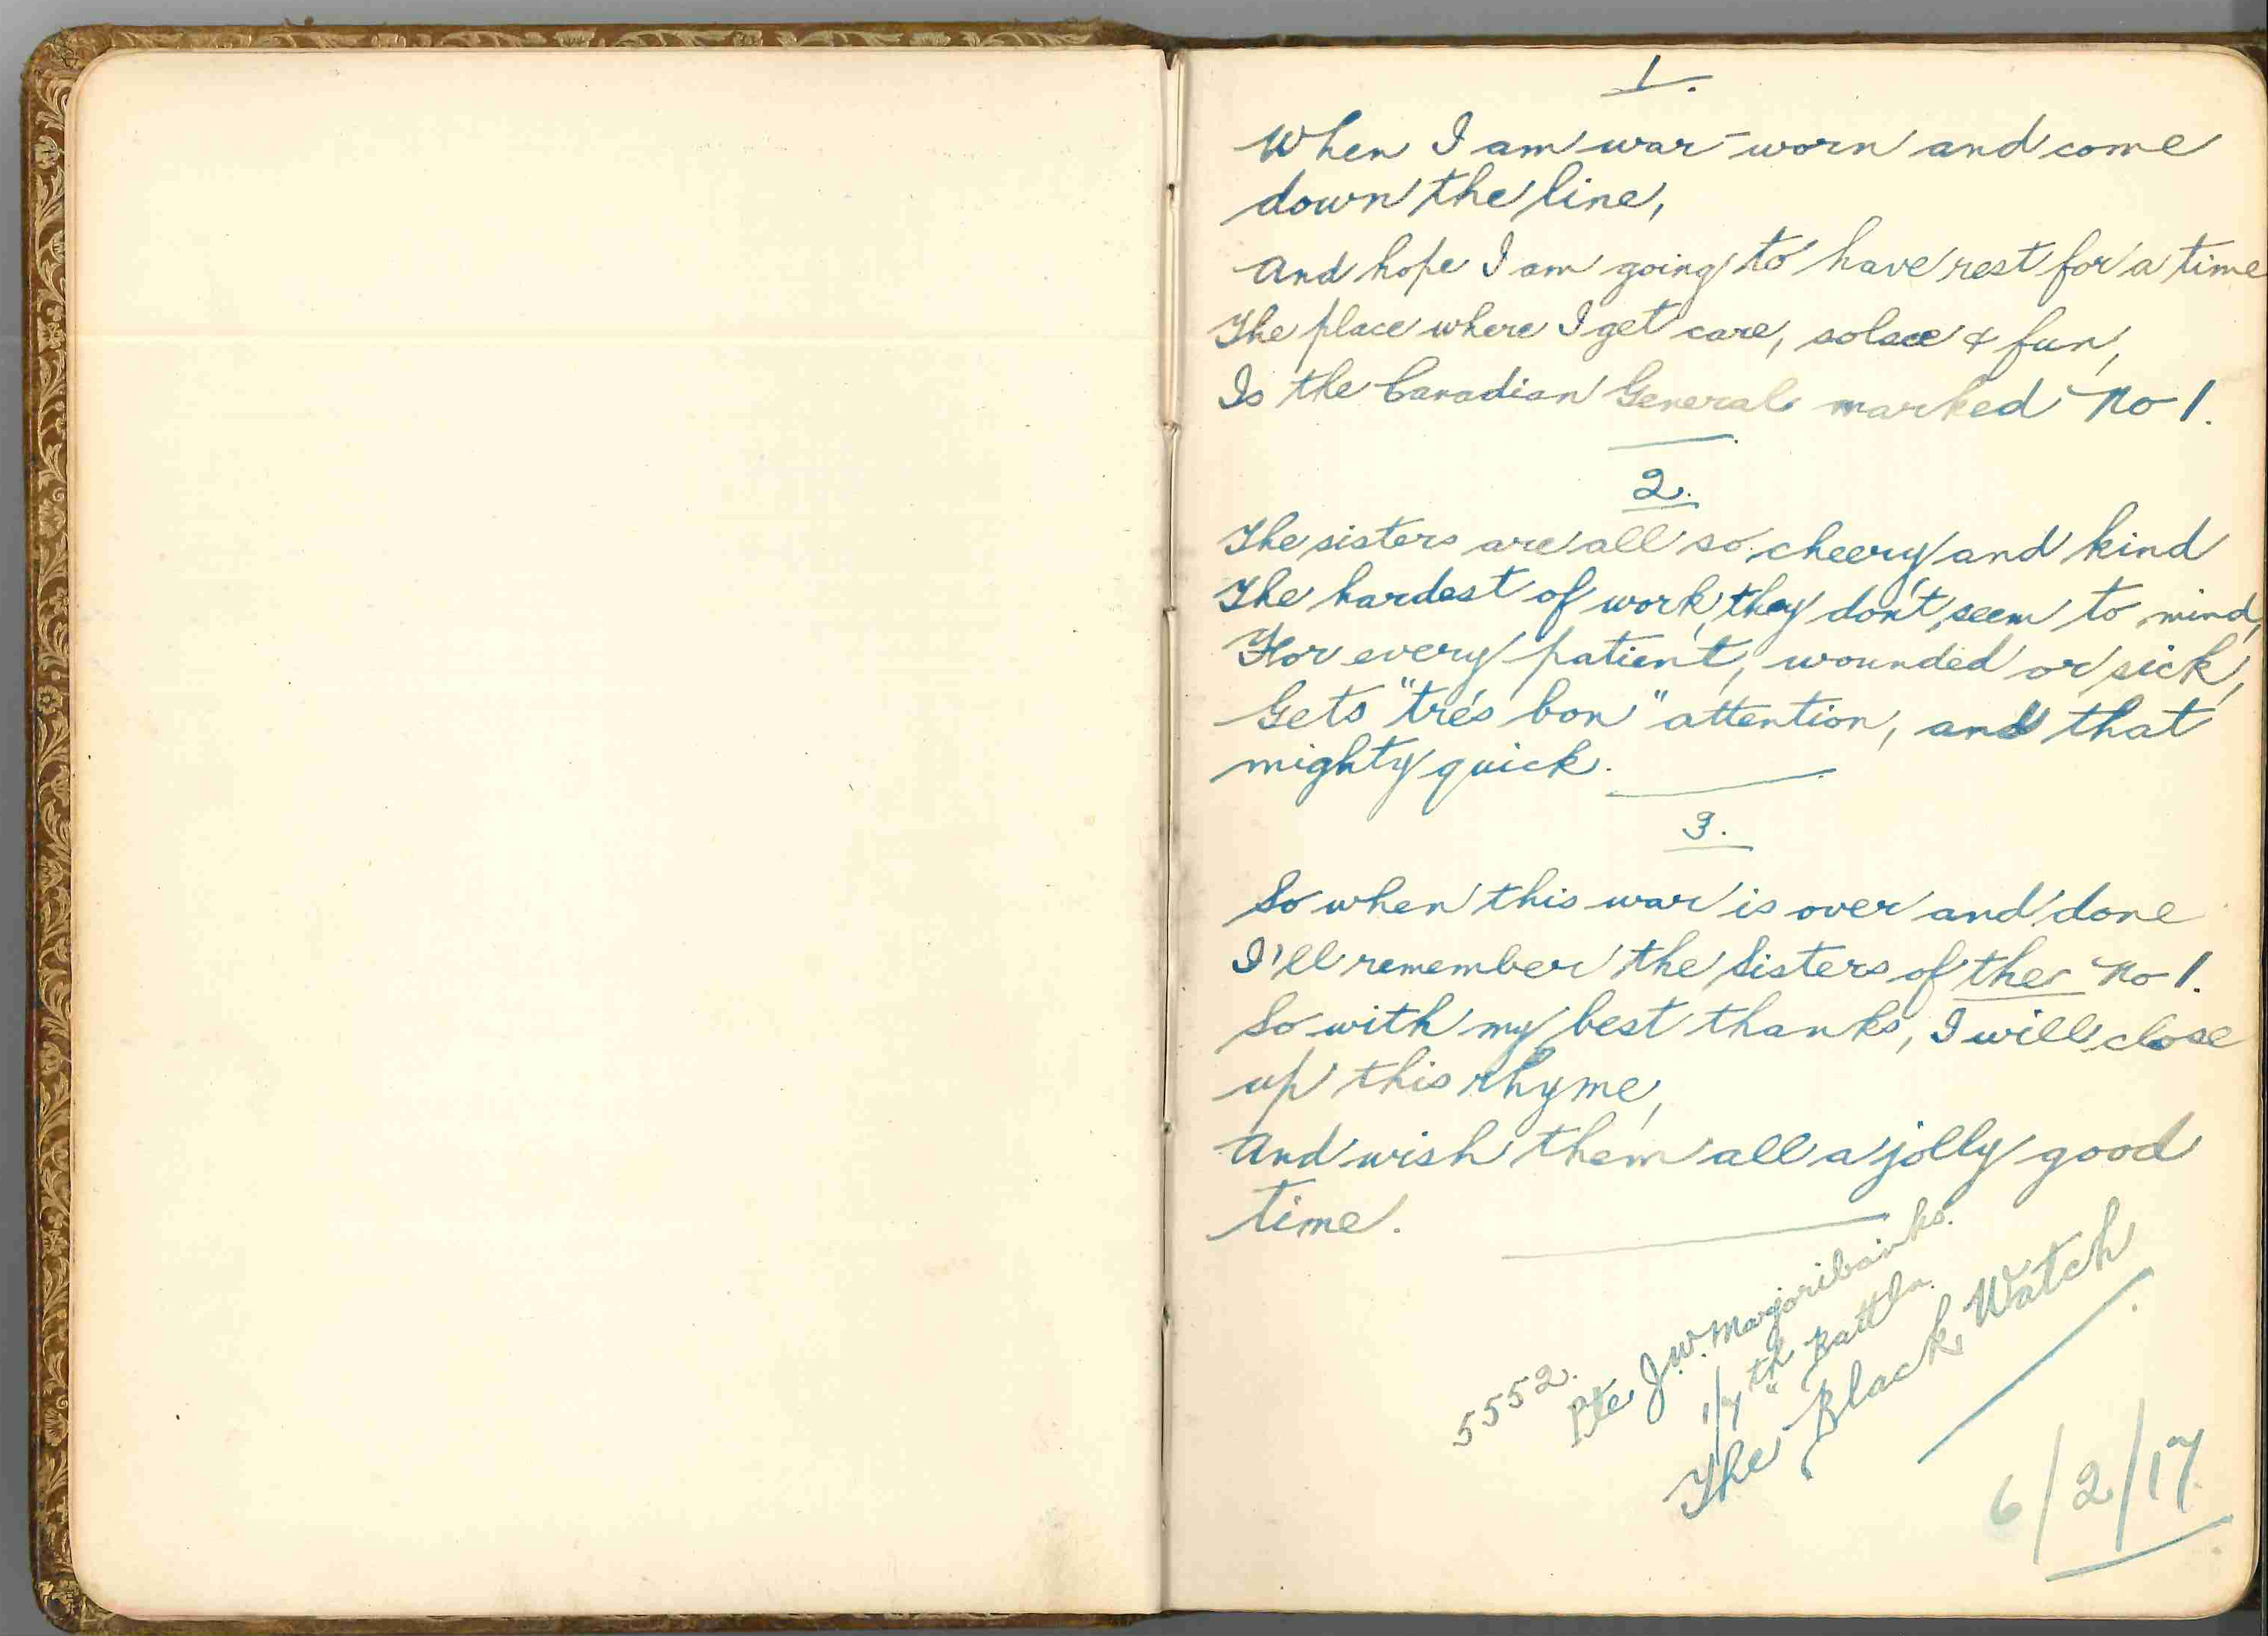 1.
When I am war-worn and come
down the line,
And hope I am going to have rest for a time
The place where I get care, solace & fun,
Is the Canadian General marked No 1.
2.
The sisters are all so cheery and kind
The hardest of work, they don't seem to mind,
For every patient, wounded or sick,
Gets "trés bon" attention, and that
mighty quick.
3.
So when this war is over and done
I'll remember the Sisters of the No 1.
So with my best thanks, I will close
up this rhyme,
And wish them all a jolly good
time.
5552.
Pte J.W. Marjoribanks.
1/7th Battln.
The Black Watch
6/2/17